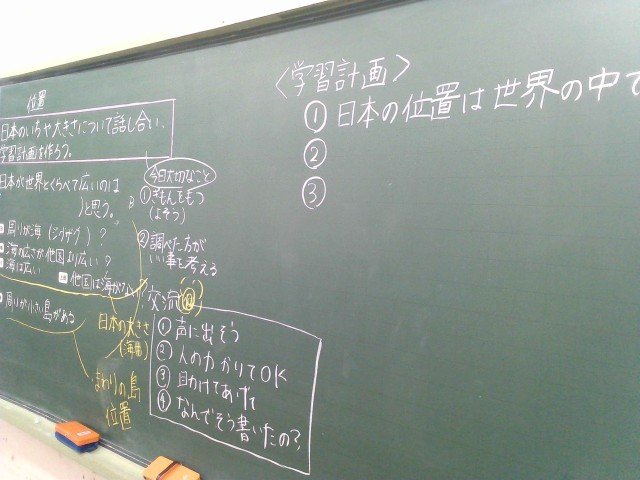 位置
日本のいちや大きさについて話し合い、
学習計画を作ろう。
日本が世界とくらべて広いのは
)と思う。
周りが海(ジグザグ)?
海の広さが他国より広い?
海は広い
他国は海が
周りが小さい島がある
日本の大きさ
まわりの島
位置
今日大切なこと
①ぎもんをもつ
(よそう)
②調べた方が
いい事を考える
交流
①声に出そう
②人の力かりてOK
③目かけてあげて
④なんでそう書いたの?
〈学習計画〉
①日本の位置は世界の中で
②
③